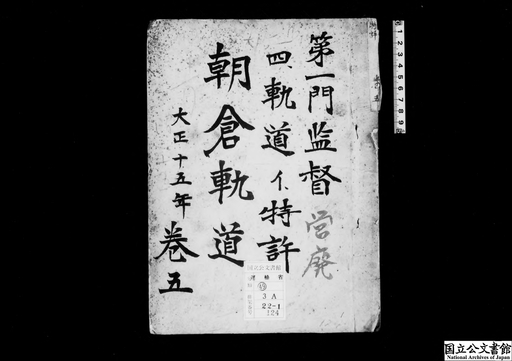 第一門監督
四、軌道イ、特許
朝倉軌道
大正十五年
巻五
営廃
国立公文書館
運輸省
3A
22-1
124
1 2 3 4 5 6 7 8 9
国立公文書館
National Archives of Japan